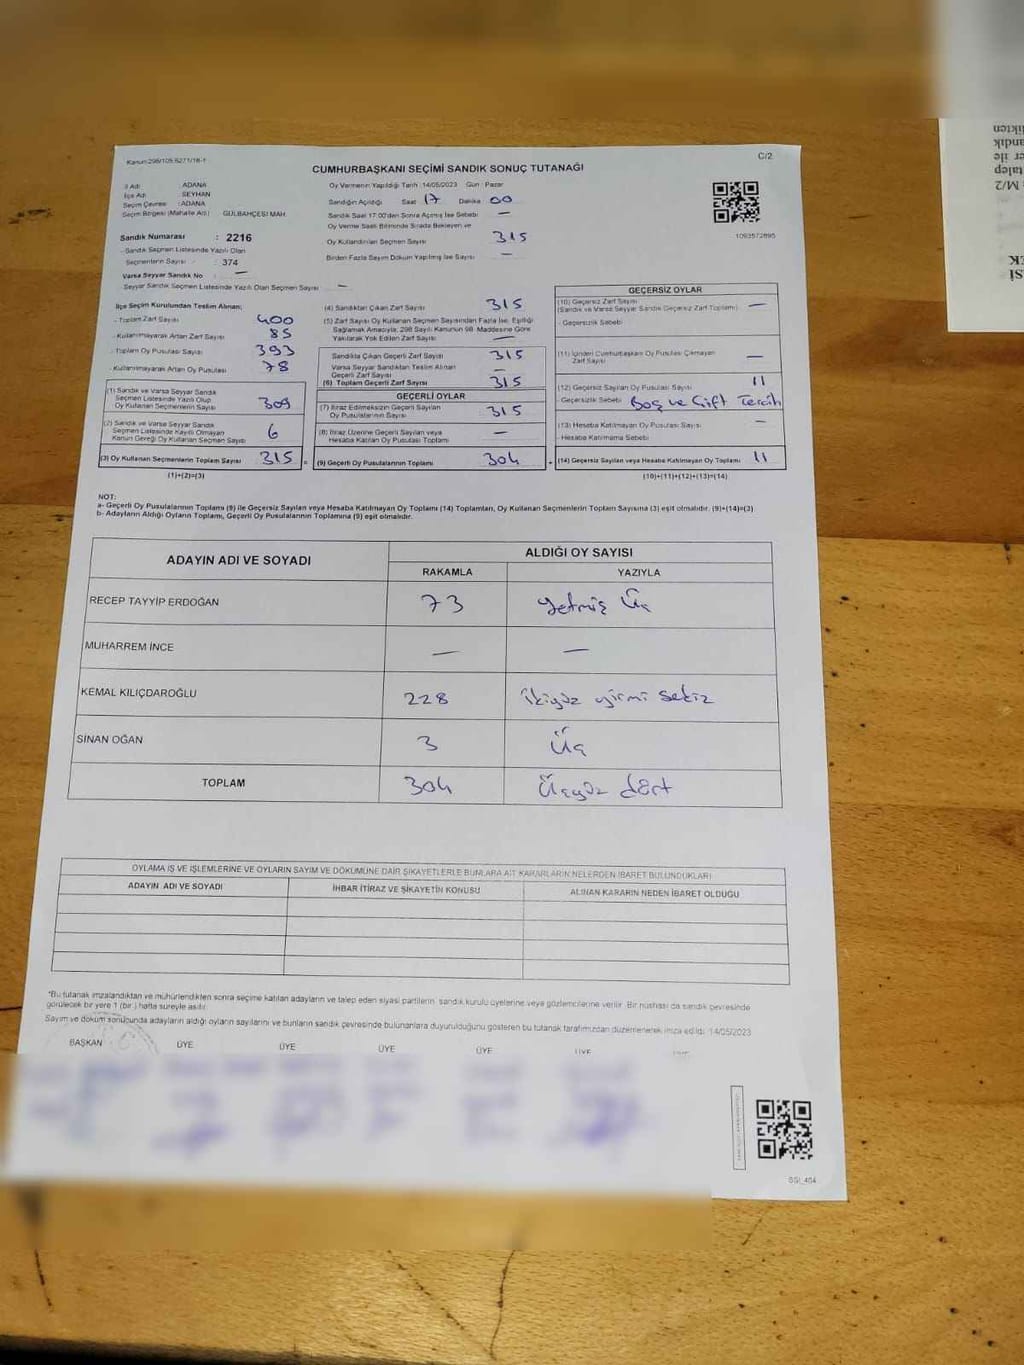 Kanun:298/105,6271/18-1
C/2
CUMHURBAŞKANI SEÇİMİ SANDIK SONUÇ TUTANAĞI
İl Adı ADANA
İlçe Adı SEYHAN
Seçim Çevresi :ADANA
Seçim Bölgesi (Mahalle Adı) GÜLBAHÇESİ MAH.
Sandık Numarası : 2216
Sandık Seçmen Listesinde Yazılı Olan
Seçmenlerin Sayısı : 374
Varsa Seyyar Sandık No —
Seyyar Sandık Seçmen Listesinde Yazılı Olan Seçmen Sayısı —
Oy Vermenin Yapıldığı Tarih :14/05/2023 Gün : Pazar
Sandığın Açıldığı Saat 17 Dakika 00
Sandık Saat 17:00'den Sonra Açılmış İse Sebebi —
Oy Verme Saati Bitiminde Sırada Bekleyen ve
Oy Kullandırılan Seçmen Sayısı 315
Birden Fazla Sayım Döküm Yapılmış İse Sayısı —
1093572895
İlçe Seçim Kurulundan Teslim Alınan;
- Toplam Zarf Sayısı 400
- Kullanılmayarak Artan Zarf Sayısı 85
- Toplam Oy Pusulası Sayısı 393
- Kullanılmayarak Artan Oy Pusulası 78
(1) Sandık ve Varsa Seyyar Sandık
Seçmen Listesinde Yazılı Olup
Oy Kullanan Seçmenlerin Sayısı 309
(2) Sandık ve Varsa Seyyar Sandık
Seçmen Listesinde Kayıtlı Olmayan
Kanun Gereği Oy Kullanan Seçmen Sayısı 6
(3) Oy Kullanan Seçmenlerin Toplam Sayısı 315 =
(1)+(2)=(3)
(4) Sandıktan Çıkan Zarf Sayısı 315
(5) Zarf Sayısı Oy Kullanan Seçmen Sayısından Fazla İse, Eşitliği
Sağlamak Amacıyla, 298 Sayılı Kanunun 98. Maddesine Göre
Yakılarak Yok Edilen Zarf Sayısı —
Sandıkta Çıkan Geçerli Zarf Sayısı 315
Varsa Seyyar Sandıktan Teslim Alınan
Geçerli Zarf Sayısı —
(6) Toplam Geçerli Zarf Sayısı 315
GEÇERLİ OYLAR
(7) İtiraz Edilmeksizin Geçerli Sayılan
Oy Pusulalarının Sayısı 315
(8) İtiraz Üzerine Geçerli Sayılan veya
Hesaba Katılan Oy Pusulası Toplamı —
(9) Geçerli Oy Pusulalarının Toplamı 304 +
GEÇERSİZ OYLAR
(10) Geçersiz Zarf Sayısı
(Sandık ve Varsa Seyyar Sandık Geçersiz Zarf Toplamı) —
- Geçersizlik Sebebi
(11) İçinden Cumhurbaşkanı Oy Pusulası Çıkmayan
Zarf Sayısı —
(12) Geçersiz Sayılan Oy Pusulası Sayısı 11
- Geçersizlik Sebebi Boş ve Çift Tercih
(13) Hesaba Katılmayan Oy Pusulası Sayısı —
- Hesaba Katılmama Sebebi
(14) Geçersiz Sayılan veya Hesaba Katılmayan Oy Toplamı 11
(10)+(11)+(12)+(13)=(14)
NOT:
a- Geçerli Oy Pusulalarının Toplamı (9) ile Geçersiz Sayılan veya Hesaba Katılmayan Oy Toplamı (14) Toplamları, Oy Kullanan Seçmenlerin Toplam Sayısına (3) eşit olmalıdır. (9)+(14)=(3)
b- Adayların Aldığı Oyların Toplamı, Geçerli Oy Pusulalarının Toplamına (9) eşit olmalıdır.
ADAYIN ADI VE SOYADI
ALDIĞI OY SAYISI
RAKAMLA YAZIYLA
RECEP TAYYİP ERDOĞAN 73 yetmiş Üç
MUHARREM İNCE — —
KEMAL KILIÇDAROĞLU 228 ikiyüz yirmi sekiz
SİNAN OĞAN 3 Üç
TOPLAM 304 Üçyüz dört
OYLAMA İŞ VE İŞLEMLERİNE VE OYLARIN SAYIM VE DÖKÜMÜNE DAİR ŞİKAYETLERLE BUNLARA AİT KARARLARIN NELERDEN İBARET BULUNDUKLARI
ADAYIN ADI VE SOYADI İHBAR İTİRAZ VE ŞİKAYETİN KONUSU ALINAN KARARIN NEDEN İBARET OLDUĞU
*Bu tutanak imzalandıktan ve mühürlendikten sonra seçime katılan adayların ve talep eden siyasi partilerin sandık kurulu üyelerine veya gözlemcilerine verilir. Bir nüshası da sandık çevresinde
görülecek bir yere 1 (bir ) hafta süreyle asılır.
Sayım ve döküm sonucunda adayların aldığı oyların sayılarını ve bunların sandık çevresinde bulunanlara duyurulduğunu gösteren bu tutanak tarafımızdan düzenlenerek imza edildi. 14/05/2023
BAŞKAN ÜYE ÜYE ÜYE ÜYE ÜYE
SSI_464